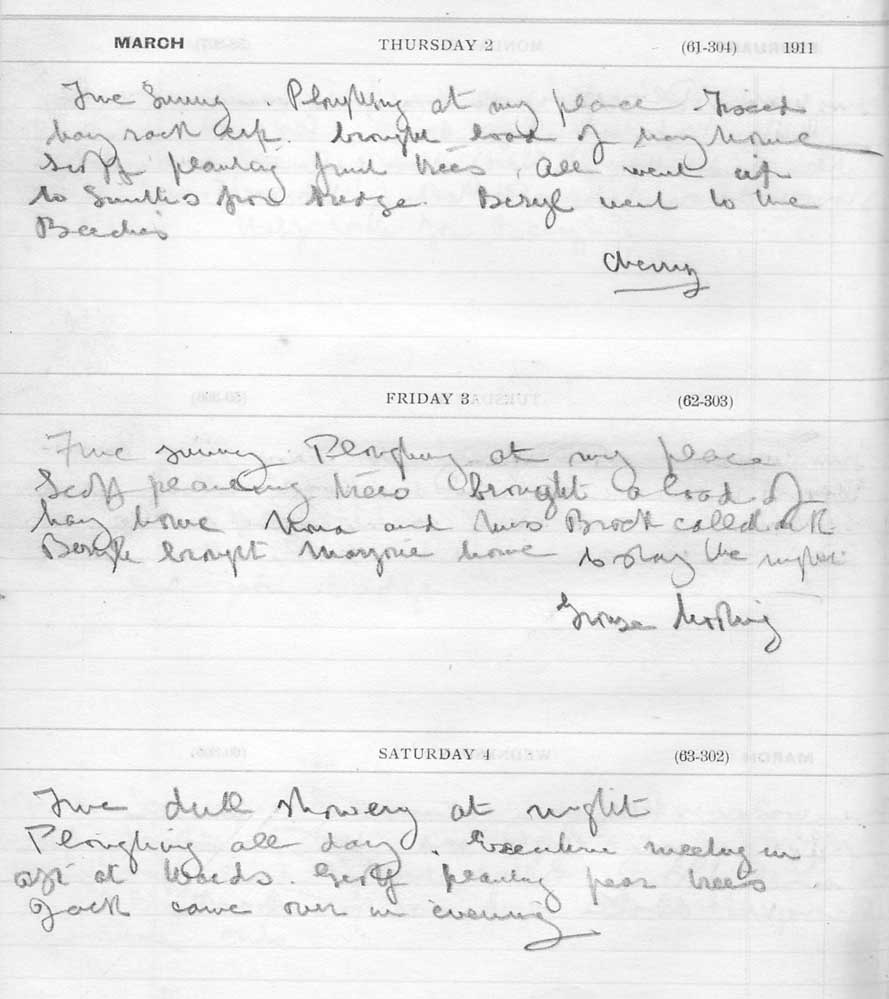 MARCH THURSDAY 2 (61-304) 1911
Fine Sunny. Ploughing at my place. Fixed
hay rack up. brought load of hay home
Geoff planting fruit trees, All went up
to Smiths for bridge. Beryl went to the
Beeches
Cherry
FRIDAY 3 (62-303)
Fine sunny Ploughing at my place
Geoff planting trees brought a load of
hay home and Miss Brock called
Beryl brought Marjorie home to stay the night
SATURDAY 4 (63-302)
Fine dull showery at night
Ploughing all day. Executive meeting in
aft at Woods. Geoff planting pear trees
Jack came over in evening